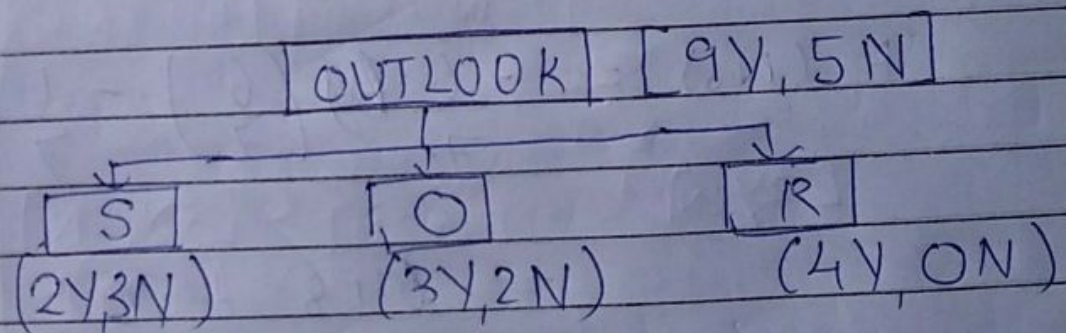 OUTLOOK 9Y, 5N
S O R
(2Y,3N) (3Y,2N) (4Y, 0N)